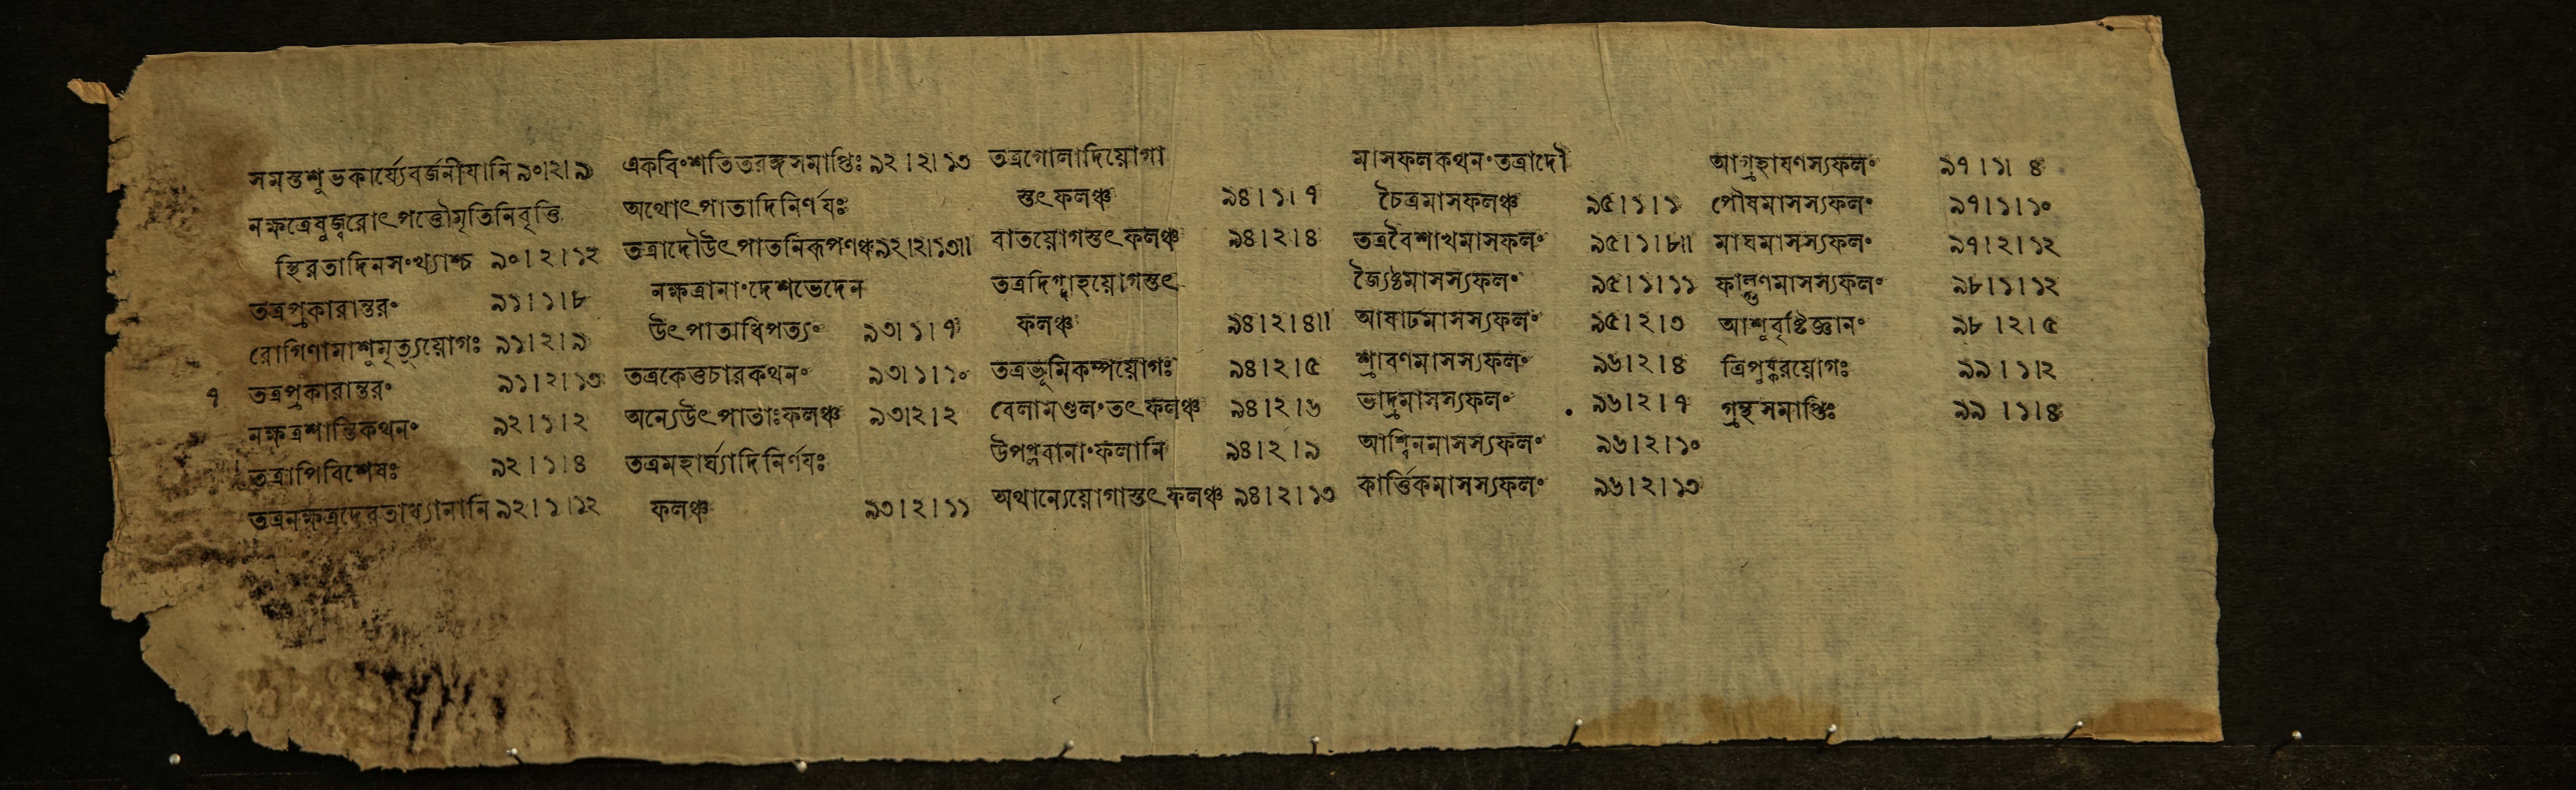 সমস্তশুভকার্য্যেবর্জনীযানি ৯০।২।৯
নক্ষত্রেষুজ্বরোৎপত্তৌমৃতিনিবৃত্তি
স্থিরতাদিনসংখ্যাশ্চ ৯০।২।১২
তত্রপ্রকারান্তরং ৯১।১।৮
রোগিণামাশুমৃত্যুয়োগঃ ৯১।২।৯
৭ তত্রপ্রকারান্তরং ৯১।২।১৩
নক্ষত্রশান্তিকথনং ৯২।১।২
তত্রাপিবিশেষঃ ৯২।১।৪
তত্রনক্ষত্রদেবতাধ্যানানি ৯২।১।১২
একবিংশতিতরঙ্গসমাপ্তিঃ ৯২।২।১৩
অথোৎপাতাদিনির্ণযঃ
তত্রাদৌউৎপাতনিরূপণঞ্চ ৯২।২।১৩॥
নক্ষত্রানাংদেশভেদেন
উৎপাতাধিপত্যং ৯৩।১।৭
তত্রকেতুচারকথনং ৯৩।১।১০
অন্যেউৎপাতাঃফলঞ্চ ৯৩।২।২
তত্রমহার্ঘ্যাদিনির্ণযঃ
ফলঞ্চ ৯৩।২।১১
তত্রগোলাদিয়োগা
স্তৎফলঞ্চ ৯৪।১।৭
বাতয়োগস্তৎফলঞ্চ ৯৪।২।৪
তত্রদিগ্দাহয়োগস্তৎ
ফলঞ্চ ৯৪।২।৪॥
তত্রভূমিকম্পয়োগঃ ৯৪।২।৫
বেলামণ্ডলংতৎফলঞ্চ ৯৪।২।৬
উপপ্লবানাংফলানি ৯৪।২।৯
অথান্যেয়োগাস্তৎফলঞ্চ ৯৪।২।১৩
মাসফলকথনংতত্রাদৌ
চৈত্রমাসফলঞ্চ ৯৫।১।১
তত্রবৈশাখমাসফলং ৯৫।১।৮॥
জ্যৈষ্ঠমাসস্যফলং ৯৫।১।১১
আষাঢমাসস্যফলং ৯৫।২।৩
শ্রাবণমাসস্যফলং ৯৬।২।৪
ভাদ্রমাসস্যফলং ৯৬।২।৭
আশ্বিনমাসস্যফলং ৯৬।২।১০
কার্ত্তিকমাসস্যফলং ৯৬।২।১৩
আগ্রহাযণস্যফলং ৯৭।১।৪
পৌষমাসস্যফলং ৯৭।১।১০
মাঘমাসস্যফলং ৯৭।২।১২
ফাল্গুণমাসস্যফলং ৯৮।১।১২
আশুবৃষ্টিজ্ঞানং ৯৮।২।৫
ত্রিপুষ্করয়োগঃ ৯৯।১।২
গ্রন্থসমাপ্তিঃ ৯৯।১।৪